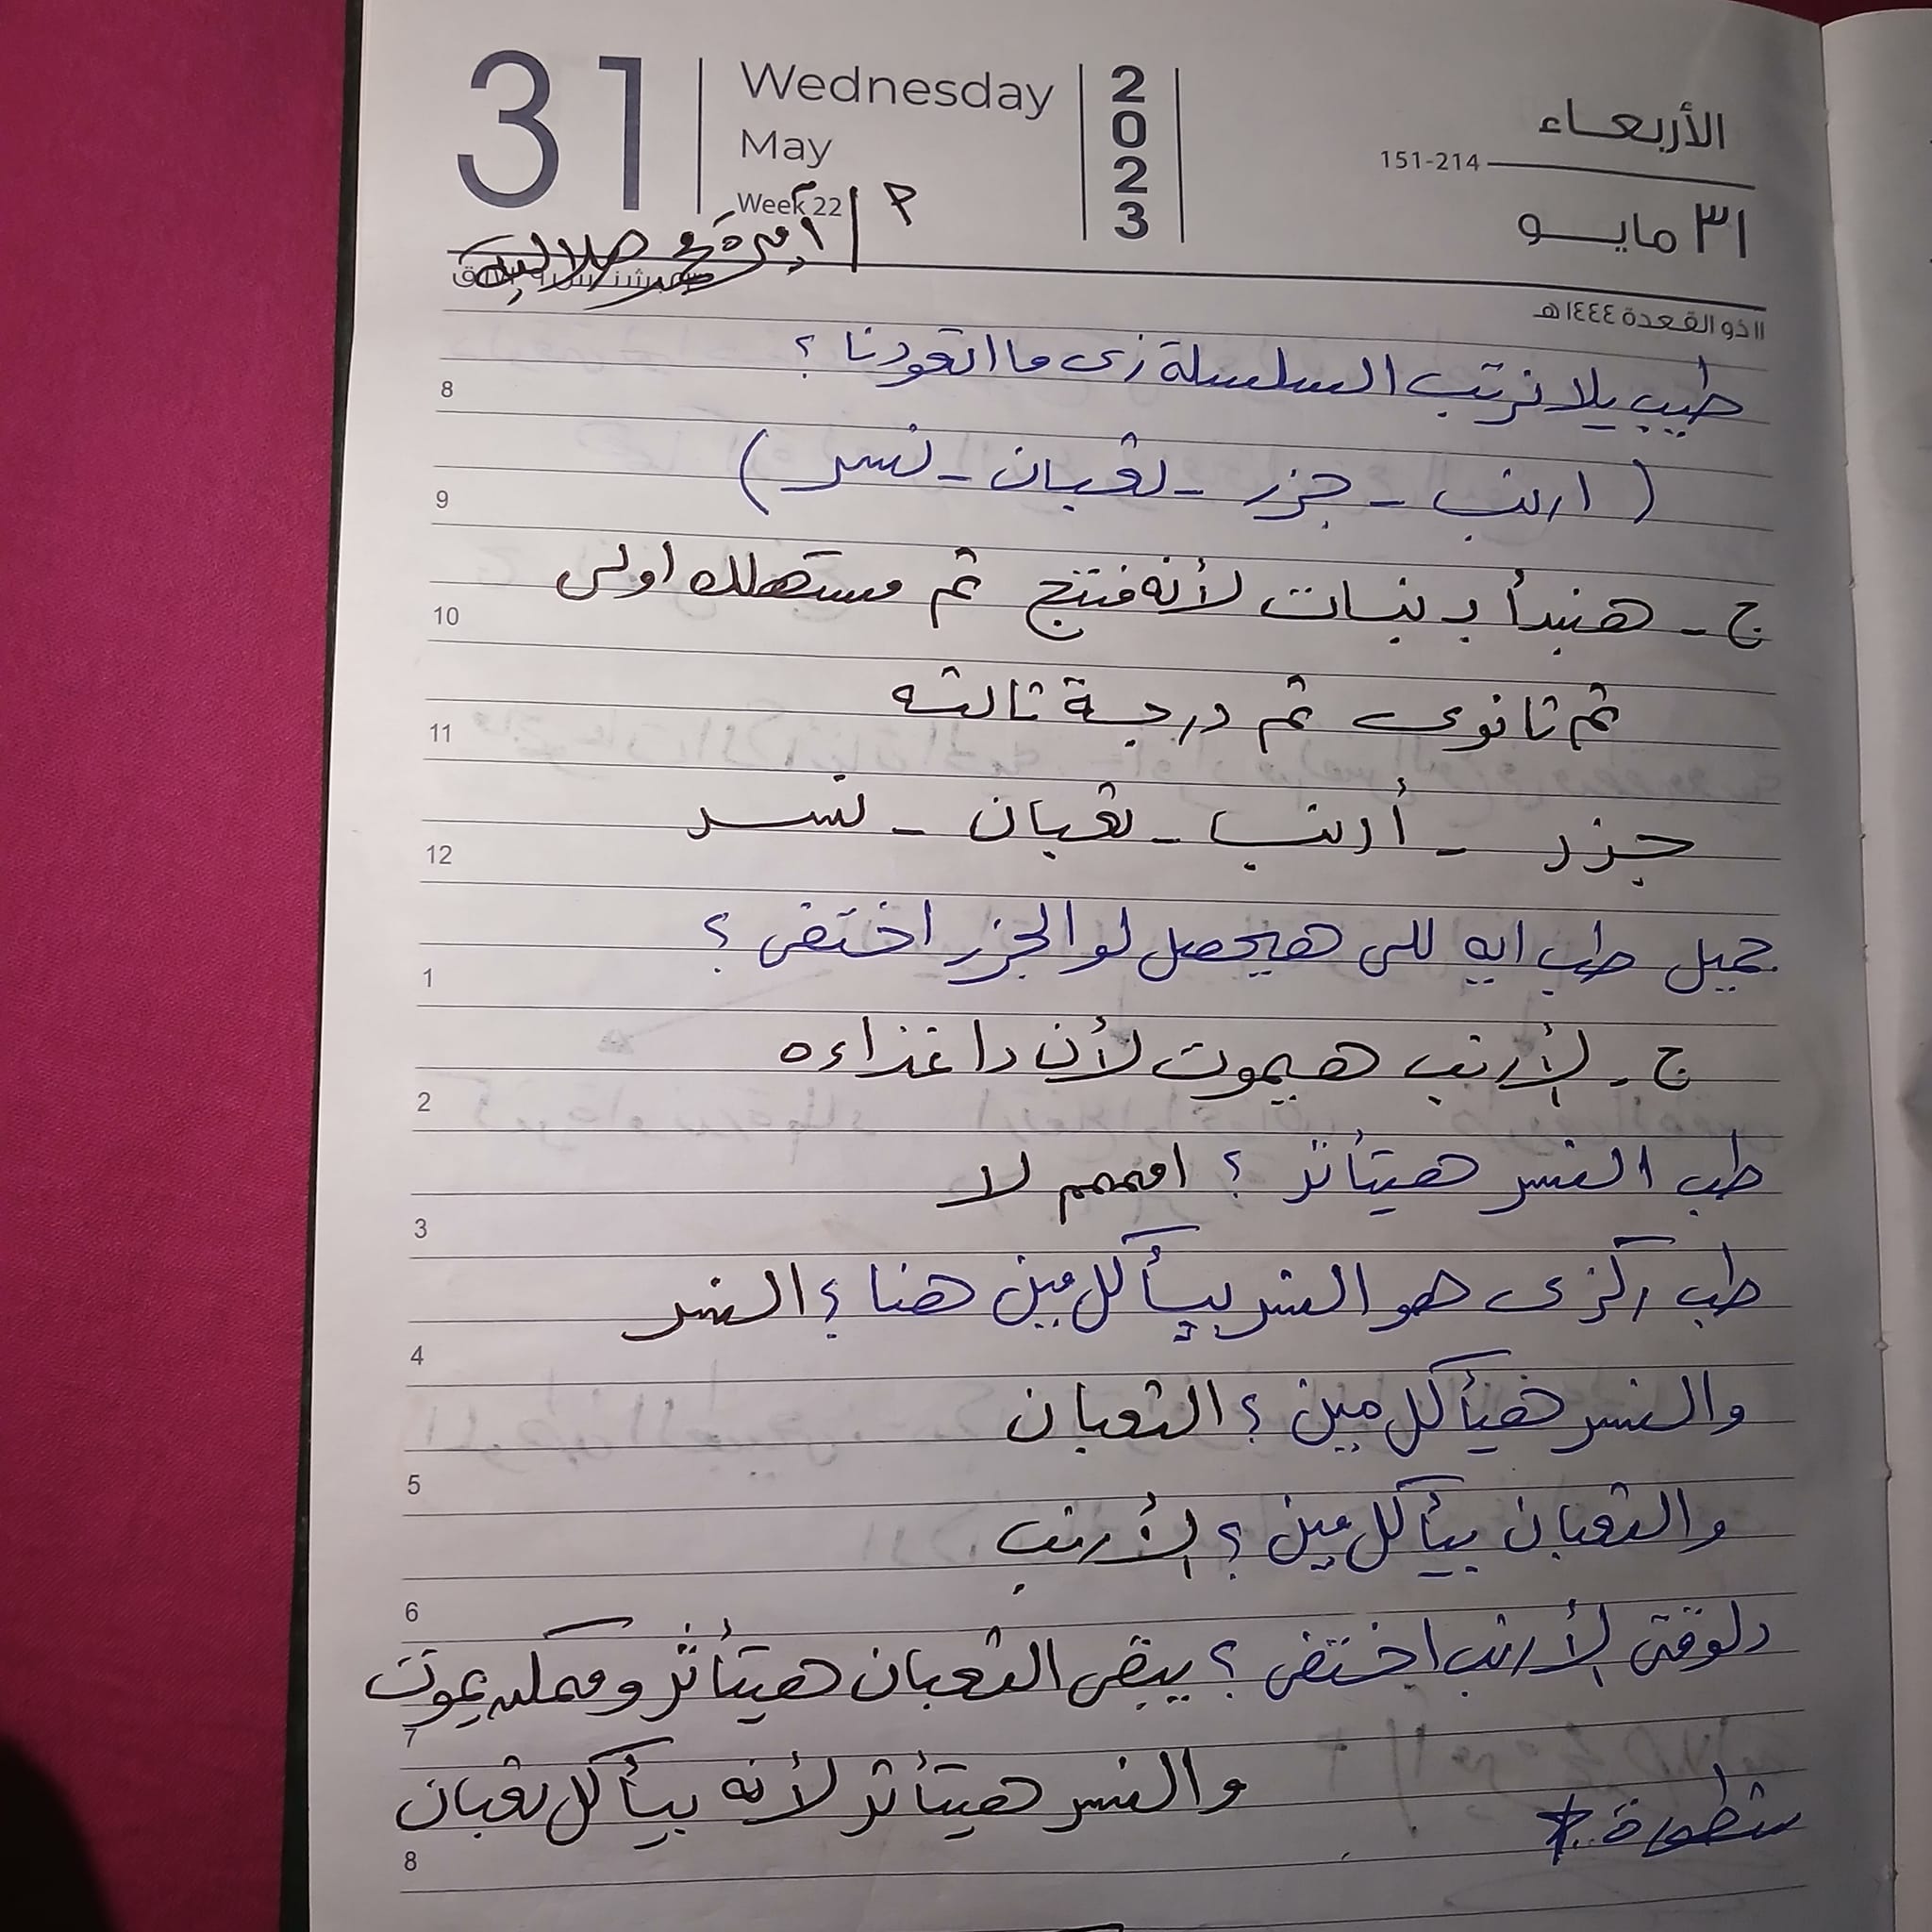 31
Wednesday
May
Week 22
2023
الأربعاء
151-214
٣١ مايو
١١ ذو القعدة ١٤٤٤هـ
م / أميرة
8 طيب يلا نرتب السلسلة زى ما اتعودنا ؟
9 ( ارنب - جزر - ثعبان - نسر )
10 ج - هنبدأ بـ نبات لأنه منتج ثم مستهلك اولى
11 ثم ثانوى ثم درجة ثالثه
12 جزر - أرنب - ثعبان - نسر
1 جميل طب ايه للى هيحصل لو الجزر اختفى ؟
2 ج - لأرنب هيموت لأن دا غذاءه
3 طب النسر هيتأثر ؟ اممم لا
4 طب ركزى هو النسر بيأكل مين هنا ؟ النسر
5 والنسر هيأكل مين ؟ الثعبان
6 والثعبان بيأكل مين ؟ لأرنب
7 دلوقتى لأرنب اختفى ؟ يبقى الثعبان هيتأثر وممكن يموت
8 والنسر هيتأثر لأنه بيأكل ثعبان
شطورة *